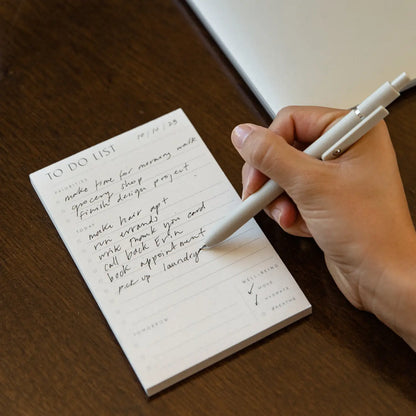 TO DO LIST 10/10/23
PRIORITIES
make time for morning walk
grocery shop
finish design project
TODAY
make hair apt
run errands
write thank you card
call back Erin
book appointment
pick up laundry
TOMORROW
WELL-BEING
✓ MOVE
✓ HYDRATE
BREATHE